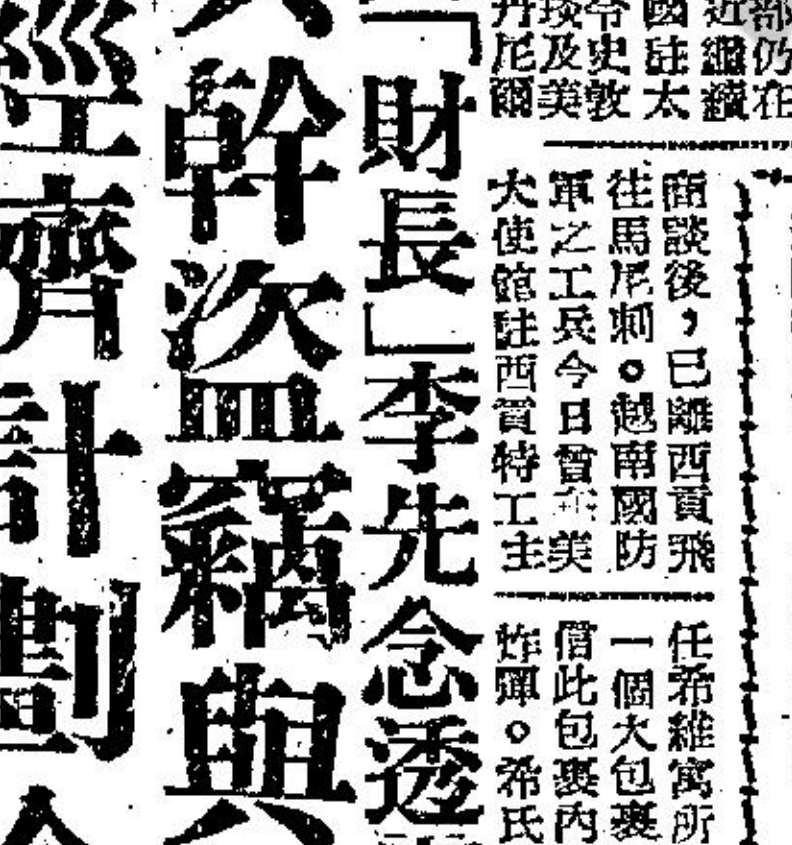 部仍在
近繼續
國駐太
令史敦
琰及美
丹尼爾
商談後，已離西貢飛
往馬尼剌。越南國防
軍之工兵今日曾在美
大使館駐西貢特工主
任希維寓所
一個大包裹
信此包裹內
炸彈。希氏
「財長」李先念透
幹盜竊與
經濟計劃